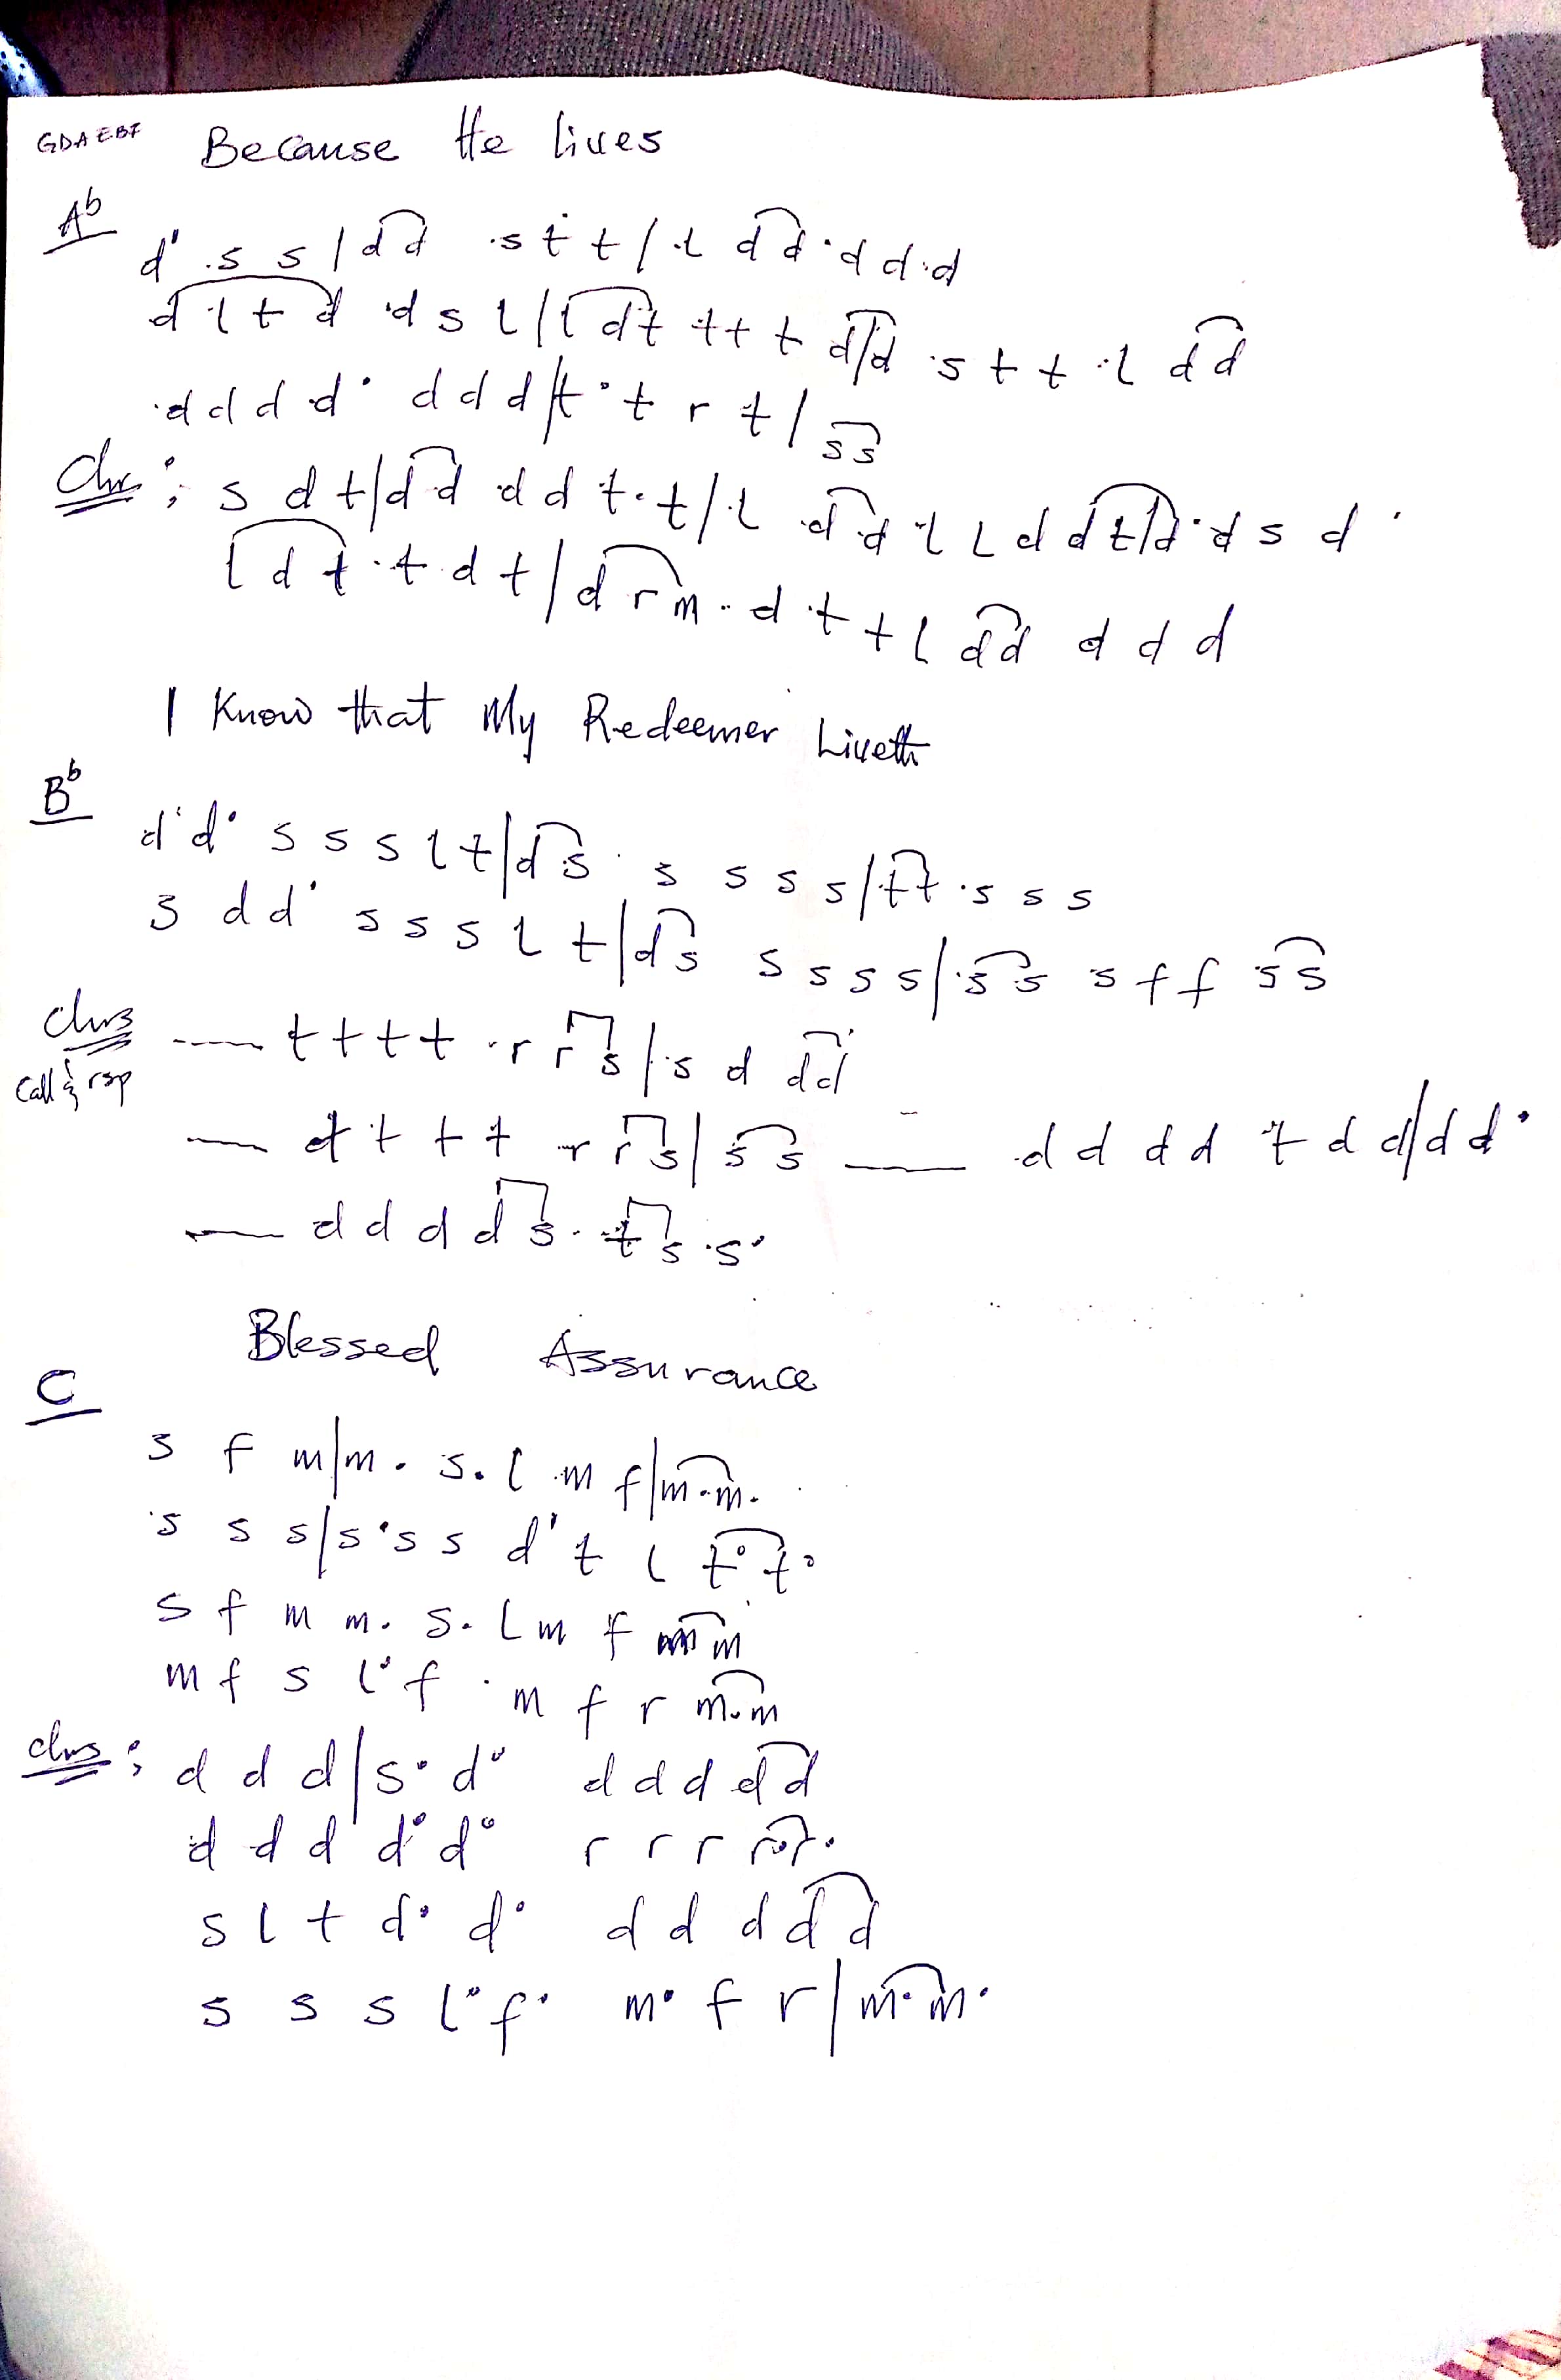 GDAEBF Because He lives
Ab
d' .s s | d d .s t t / .l d d . d d .d
d l t d 'd s l / l d t t t t d/d .s t t .l d d
.d d d d . d d d / t . t r t / s s
Chr ; s d t/d d d d t . t / .l d d l l d d t/d . d s d .
l d t . t d t / d r m . . d . t t l d d d d d
I Know that My Redeemer Liveth
Bb
d' d . s s s l t / d s . s s s s / t t . s s s
s d d ' s s s l t / d s s s s s / . s s s f f s s
Chrs — t t t t . r r s / . s d d d
Call & rsp
— t t t t r r s / s s — d d d d t d d/d d .
— d d d d s . . t s . s .
Blessed Assurance
C
s f m/m . s . l . m f/m . m .
's s s/s . s s d' t l t . t .
s f m m . s . l m f m m
m f s l . f . m f r m . m
chrs ; d d d/s . d . d d d d d
d d d d . d . r r r r . r .
s l t d . d . d d d d d
s s s l . f . m . f r/m . m .